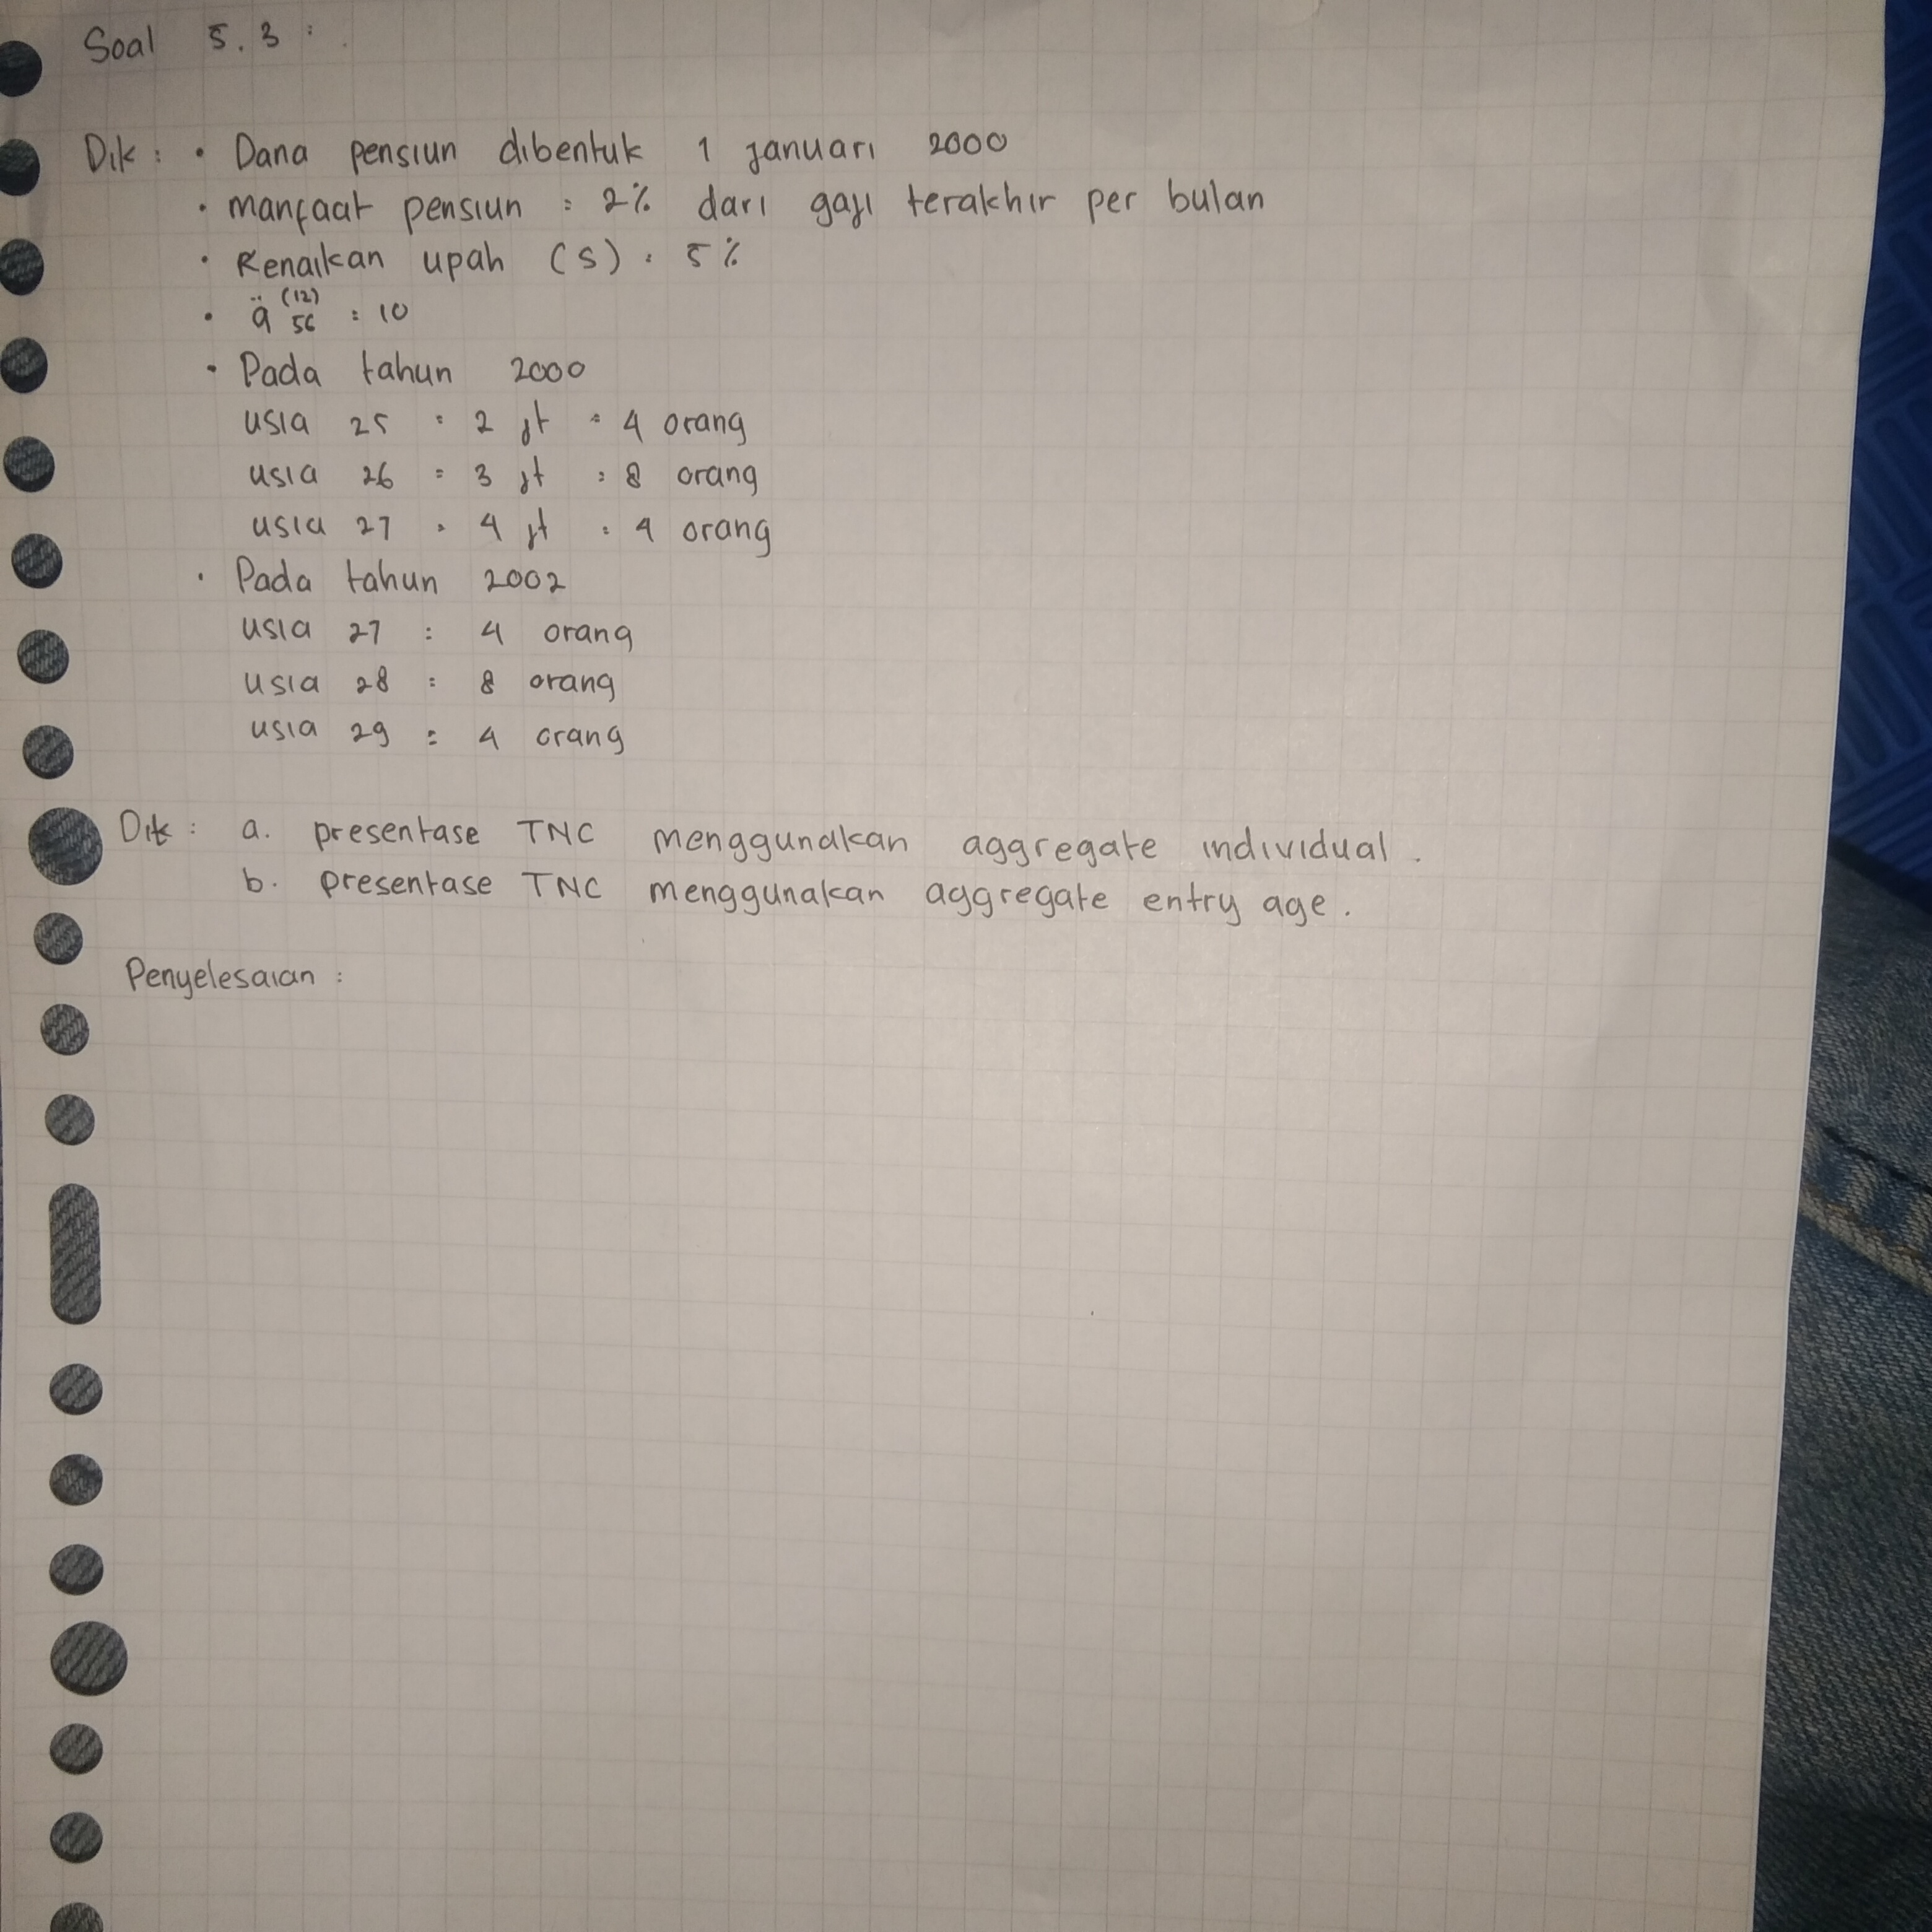 Soal 5.3 :
Dik : • Dana pensiun dibentuk 1 januari 2000
• manfaat pensiun = 2% dari gaji terakhir per bulan
• Kenaikan upah (s) : 5%
• ä₅₆⁽¹²⁾ = 10
• Pada tahun 2000
usia 25 : 2 jt = 4 orang
usia 26 = 3 jt : 8 orang
usia 27 : 4 jt : 4 orang
• Pada tahun 2002
usia 27 : 4 orang
usia 28 : 8 orang
usia 29 : 4 orang
Dit : a. presentase TNC menggunakan aggregate individual.
b. presentase TNC menggunakan aggregate entry age.
Penyelesaian :